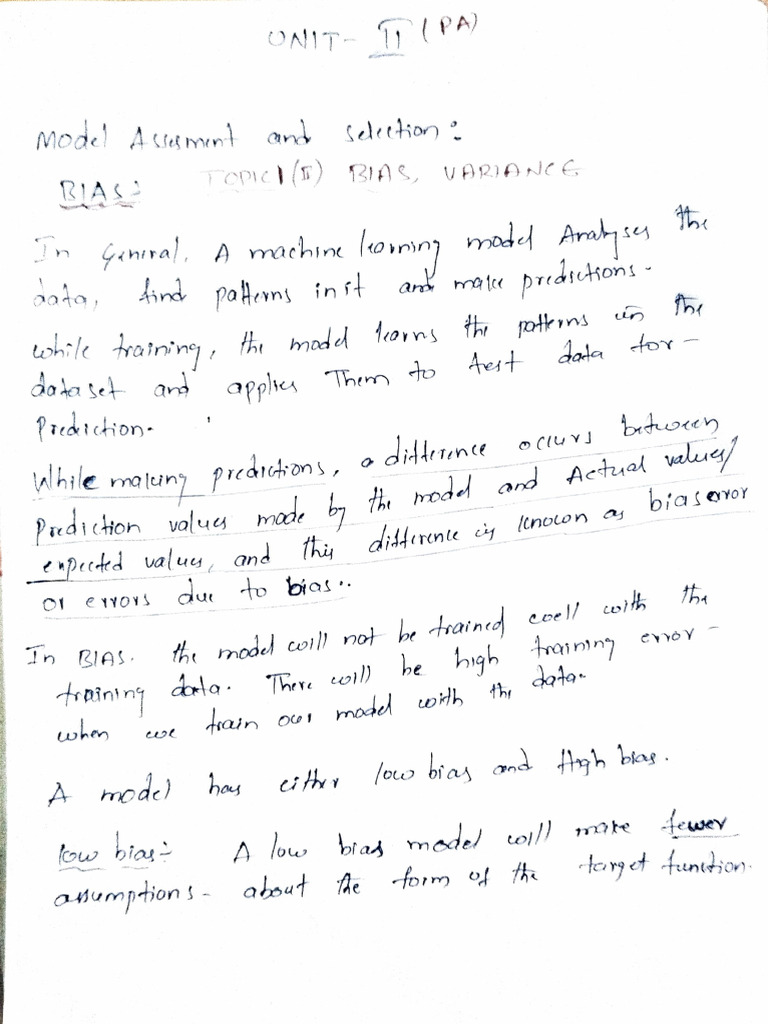 UNIT- II (PA)
Model Assesment and selection:
BIAS: TOPIC1(II) BIAS, VARIANCE
In General, A machine learning model Analyses the
data, find patterns in it and make predictions.
while training, the model learns the patterns in the
dataset and applies Them to test data for-
Prediction.
While making predictions, a difference occurs between
Prediction values made by the model and Actual values/
expected values, and this difference is known as bias error
or errors due to bias..
In BIAS. the model will not be trained well with the
training data. There will be high training error-
when we train our model with the data.
A model has either low bias and High bias.
low bias:- A low bias model will make fewer
assumptions- about the form of the target function.